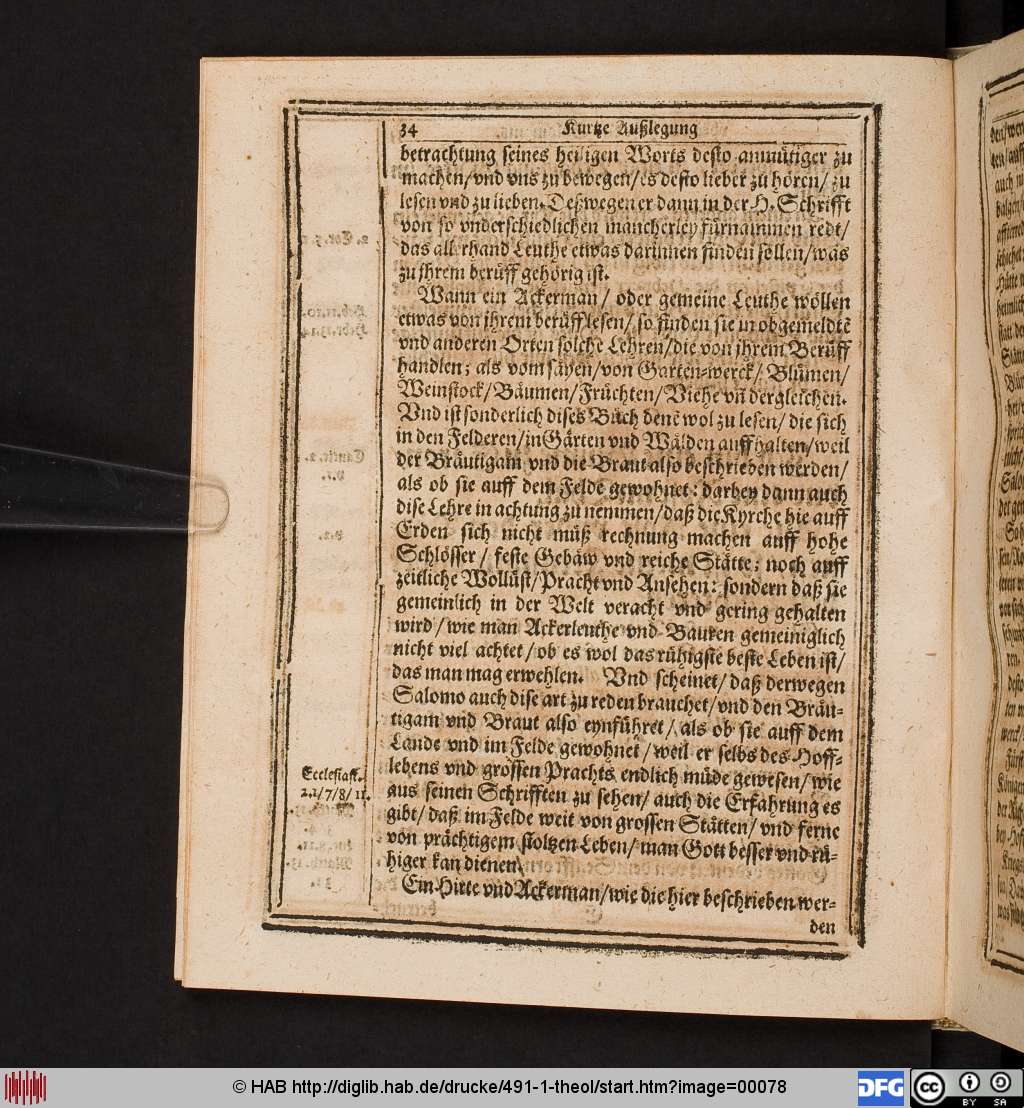 34 Kurtze Außlegung
betrachtung seines heiligen Worts desto anmütiger zu
machen/vnd vns zu bewegen/es desto lieber zu hören/ zu
lesen vnd zu lieben. Deßwegen er dann in der H. Schrifft
von so vnderschiedlichen mancherley fürnammen redt/
das allerhand Leuthe etwas darinnen finden sollen/was
zu jhrem berüff gehörig ist.
Wann ein Ackerman/ oder gemeine Leuthe wöllen
etwas von jhrem berüff lesen/ so finden sie in obgemeldtē
vnd anderen Orten solche Lehren/die von jhrem Berüff
handlen; als vom säyen/von Garten-werck/ Blümen/
Weinstock/Bäumen/Früchten/Viehe vñ dergleichen.
Vnd ist sonderlich dises Büch denē wol zu lesen/ die sich
in den Felderen/in Gärten vnd Wälden auffhalten/weil
der Bräutigam vnd die Braut also beschrieben werden/
als ob sie auff dem Felde gewohnet: darbey dann auch
dise Lehre in achtung zu nemmen/daß die Kyrche hie auff
Erden sich nicht müß rechnung machen auff hohe
Schlösser/ feste Gebäw vnd reiche Stätte; noch auff
zeitliche Wollüst/Pracht vnd Ansehen: sondern daß sie
gemeinlich in der Welt veracht vnd gering gehalten
wird/wie man Ackerleuthe vnd Bauren gemeiniglich
nicht viel achtet/ob es wol das rühigste beste Leben ist/
das man mag erwehlen. Vnd scheinet/ daß derwegen
Salomo auch dise art zu reden brauchet/vnd den Bräu-
tigam vnd Braut also eynführet/ als ob sie auff dem
Lande vnd im Felde gewohnet/weil er selbs des Hoff-
lebens vnd grossen Prachts endlich müde gewesen/wie
aus seinen Schrifften zu sehen/ auch die Erfahrung es
gibt/ daß im Felde weit von grossen Stätten/ vnd ferne
von prächtigem stoltzen Leben/ man Gott besser vnd rü-
higer kan dienen.
Ein Hirte vnd Ackerman/wie die hier beschrieben wer-
den
Ecclesiast.
2.2/7/8/11.
© HAB http://diglib.hab.de/drucke/491-1-theol/start.htm?image=00078
DFG
cc BY SA